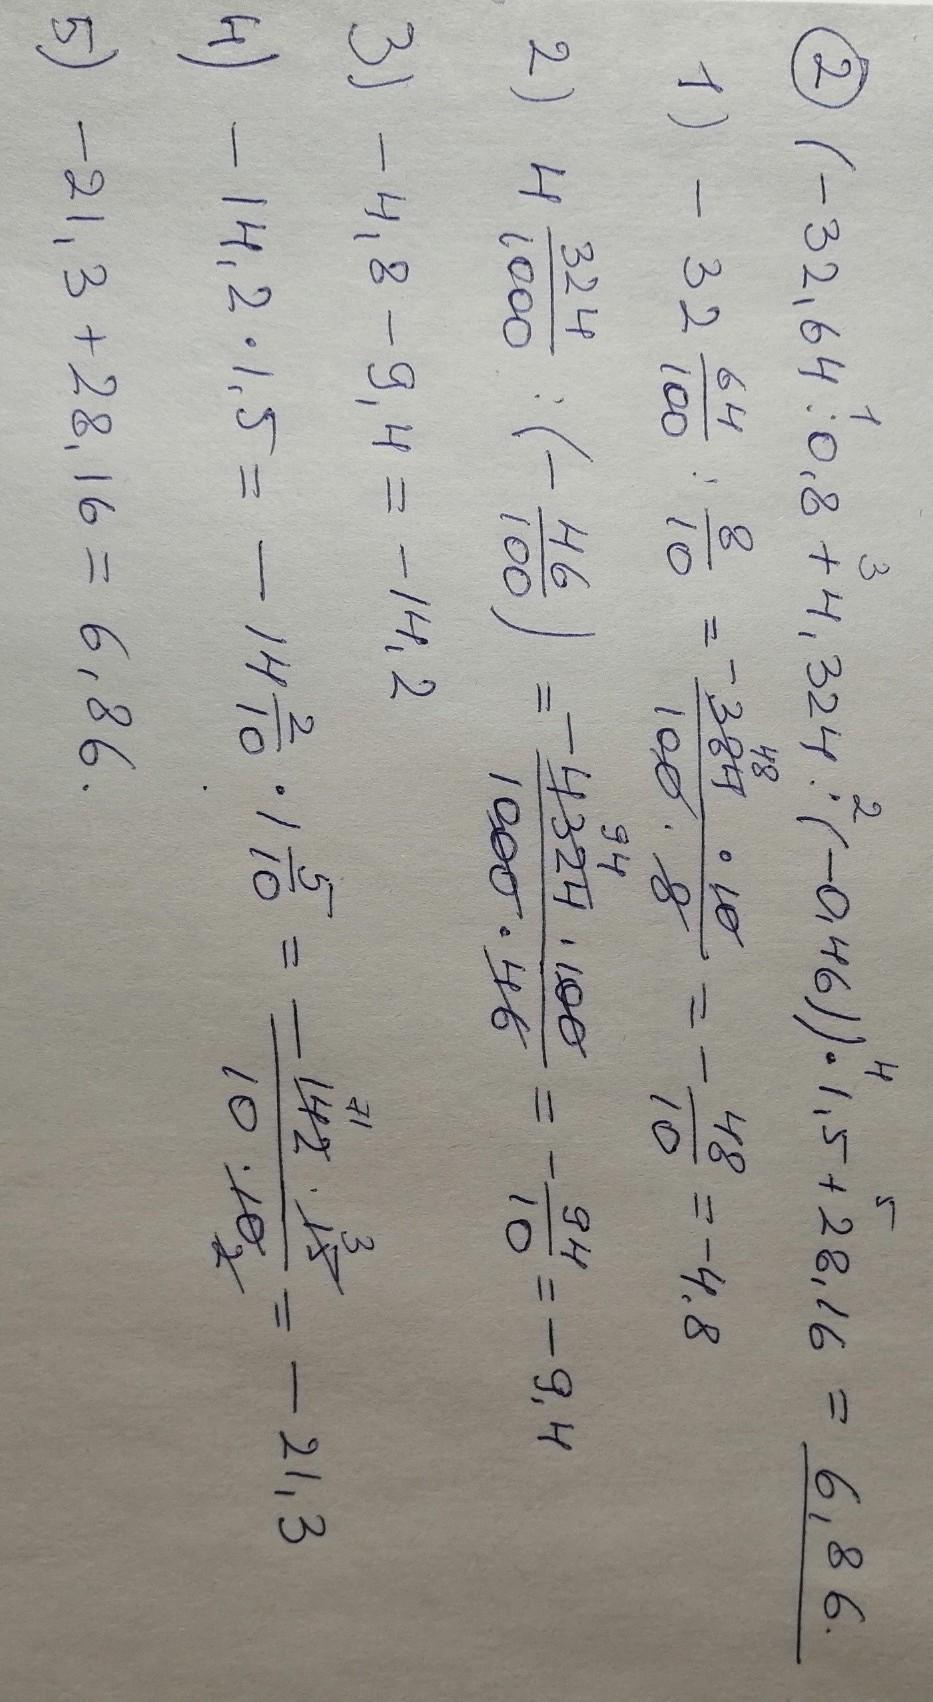 ② (-32,64 : 0,8 + 4,324 : (-0,46)) · 1,5 + 28,16 = 6,86.
1) -32 64/100 : 8/10 = -384 · 10 / 100 · 8 = -48/10 = -4,8
2) 4 324/1000 : (-46/100) = -4324 · 100 / 1000 · 46 = -94/10 = -9,4
3) -4,8 - 9,4 = -14,2
4) -14,2 · 1,5 = -14 2/10 · 1 5/10 = -142 · 15 / 10 · 10 = -21,3
5) -21,3 + 28,16 = 6,86.